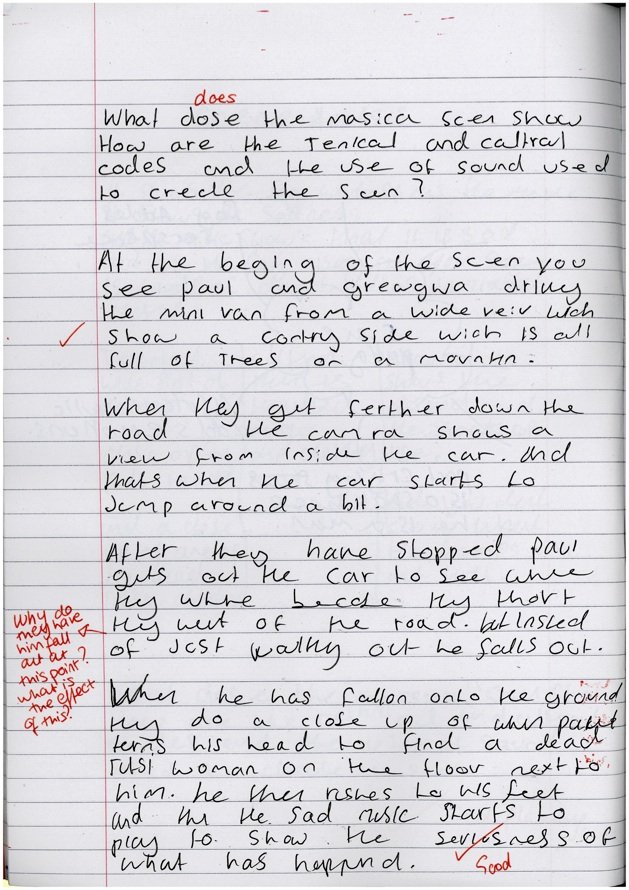 does
What dose the masica scen show
How are the Tenical and caltral
codes and the use of sound used
to crecte the scen?
At the beging of the scen you
see paul and grewgwa driving
the mini van from a wide veiv wich
show a contry side wich is all
full of Trees on a mountin.
When they get ferther down the
road the camra shows a
view from inside the car. and
thats when the car starts to
Jump around a bit.
After they have stopped paul
gets out the car to see where
they where they thort
they went of the road. but insted
of Jost out he falls out.
Why do
they have
him fall
out at
this point?
what is
the effect
of this?
When he has fallon onto the ground
they do a close up of when paul
terns his head to find a dead
Tutsi woman on the floor next to
him. he then rishes to his feet
and the sad music starts to
play to show the seriusness of
what has happnd.
Good